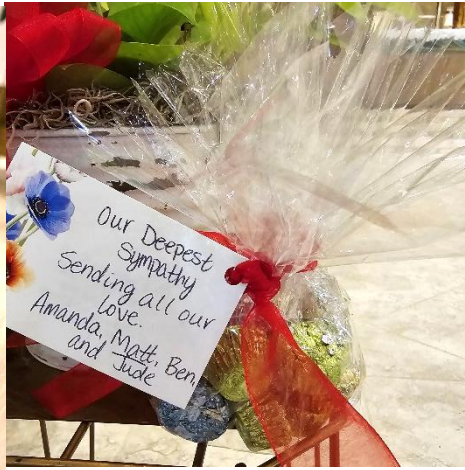 Our Deepest
Sympathy
Sending all our
love.
Amanda, Matt, Ben,
and Jude